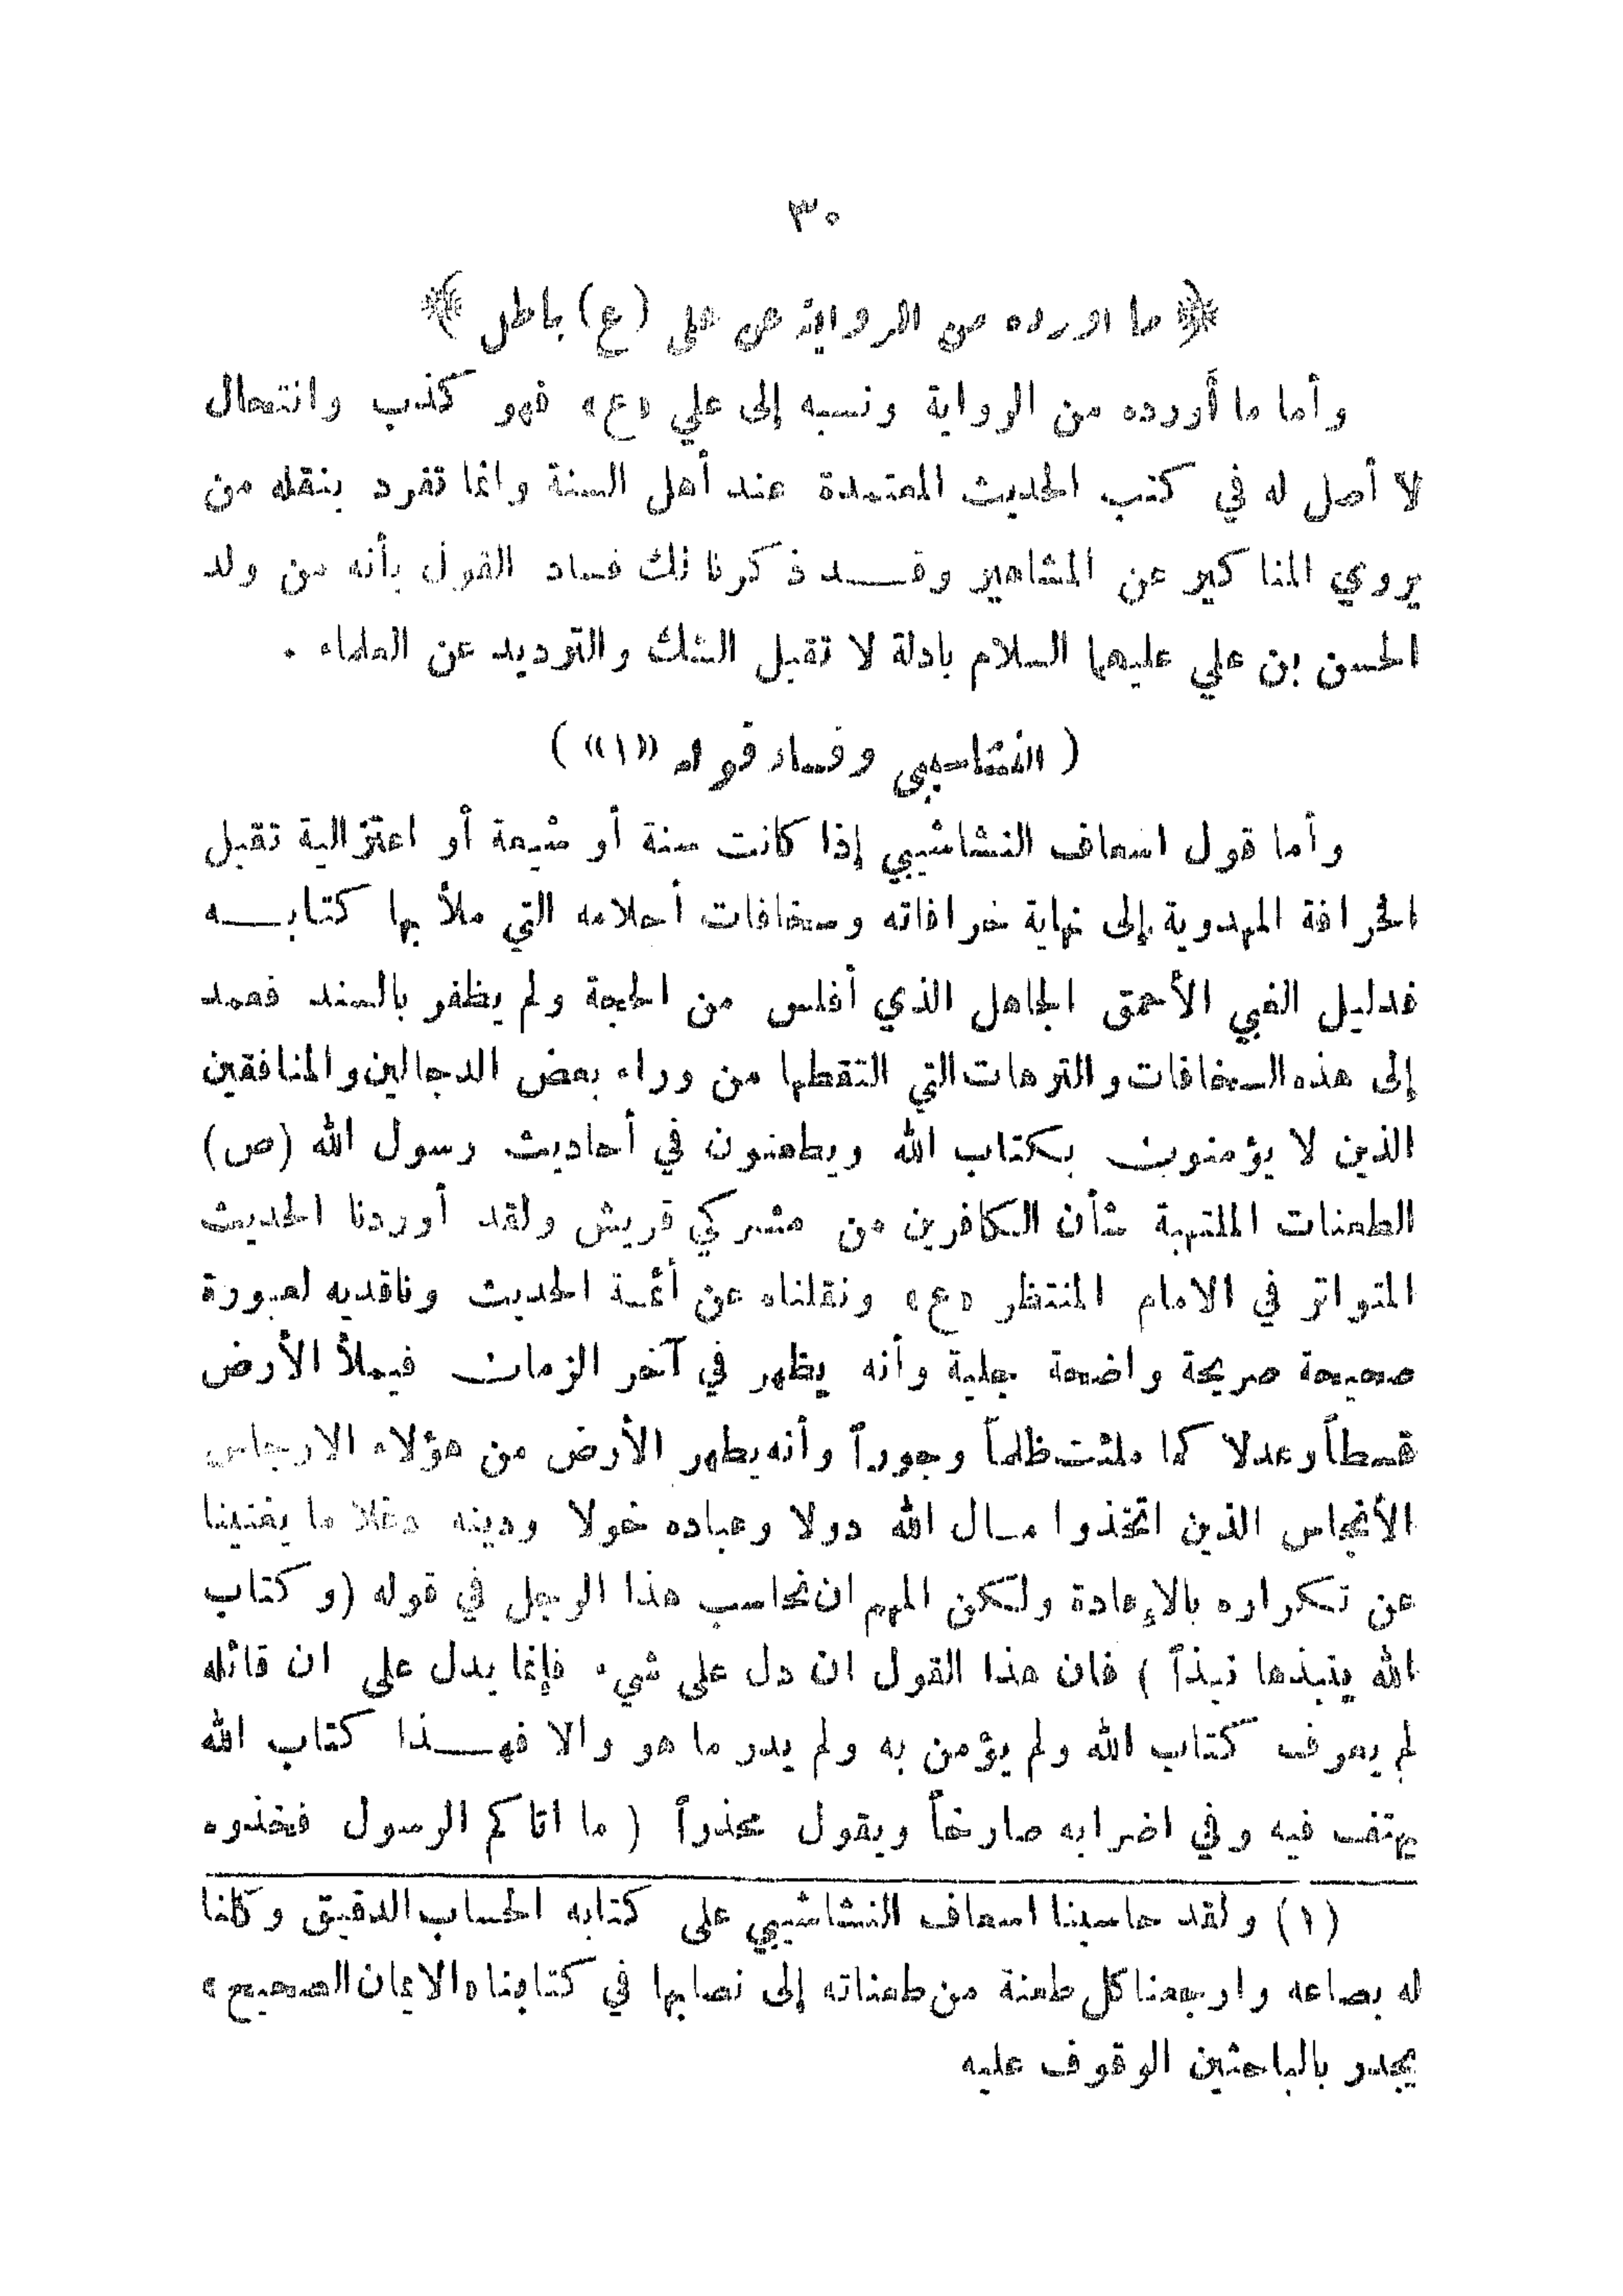 ٣٠
﴿ ما اورده من الرواية عن علي (ع) باطل ﴾
وأما ما أورده من الرواية ونسبه إلى علي «ع» فهو كذب وانتحال
لا أصل له في كتب الحديث المعتمدة عند أهل السنة وانما تفرد بنقله من
يروي المناكير عن المشاهير وقــد ذكرنا لك فساد القول بأنه من ولد
الحسن بن علي عليهما السلام بادلة لا تقبل الشك والترديد عن العلماء .
( النشاشيبي وفساد قوله «١» )
وأما قول اسعاف النشاشيبي إذا كانت سنة أو شيعة أو اعتزالية تقبل
الخرافة المهدوية إلى نهاية خرافاته وسخافات أحلامه التي ملأ بها كتابــه
فدليل الغبي الأحمق الجاهل الذي أفلس من الحجة ولم يظفر بالسند فعمد
إلى هذه السخافات والترهات التي التقطها من وراء بعض الدجالين والمنافقين
الذين لا يؤمنون بكتاب الله ويطعنون في أحاديث رسول الله (ص)
الطعنات الملتهبة شأن الكافرين من مشركي قريش ولقد أوردنا الحديث
المتواتر في الامام المنتظر «ع» ونقلناه عن أئمة الحديث وناقديه لصورة
صحيحة صريحة واضحة جلية وأنه يظهر في آخر الزمان فيملأ الأرض
قسطاً وعدلا كما ملئت ظلماً وجوراً وأنه يطهر الأرض من هؤلاء الارجاس
الأنجاس الذين اتخذوا مـال الله دولا وعباده خولا ودينه دغلا ما يغنينا
عن تكراره بالإعادة ولكن المهم ان نحاسب هذا الرجل في قوله (وكتاب
الله ينبذها نبذاً ) فان هذا القول ان دل على شيء فإنما يدل على ان قائله
لم يعرف كتاب الله ولم يؤمن به ولم يدر ما هو والا فهــذا كتاب الله
يهتف فيه وفي اضرابه صارخاً ويقول محذراً ( ما اتاكم الرسول فخذوه
(١) ولقد حاسبنا اسعاف النشاشيبي على كتابه الحساب الدقيق وكلنا
له بصاعه وارجعنا كل طعنة من طعناته إلى نصابها في كتابنا «الايمان الصحيح»
يجدر بالباحثين الوقوف عليه